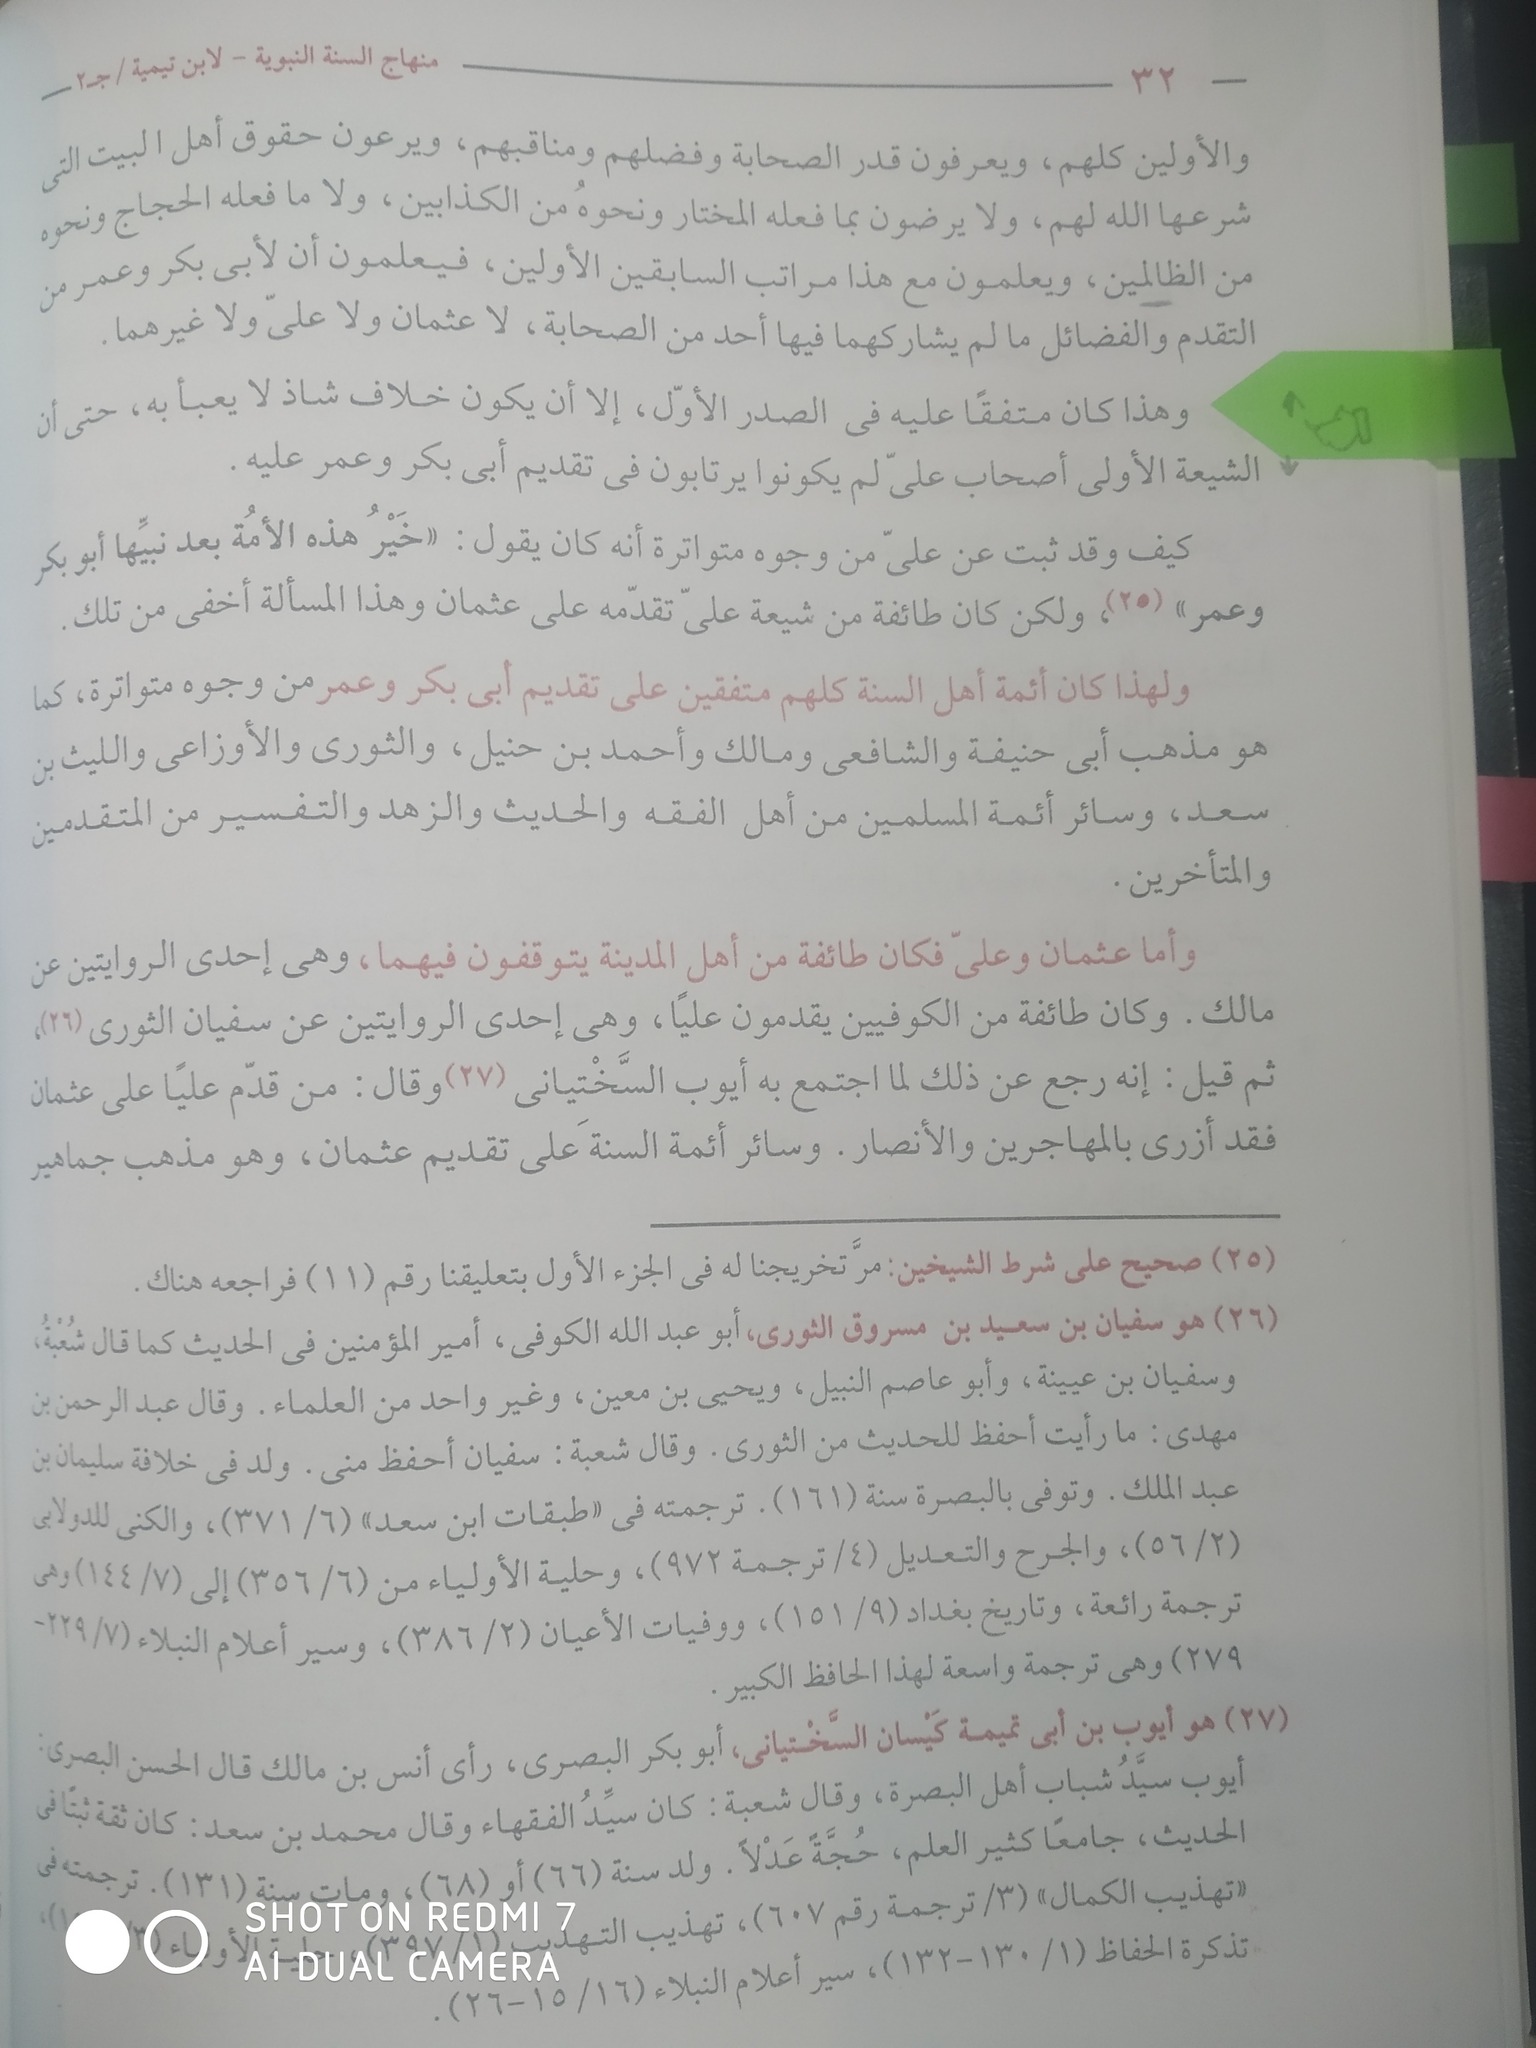 ٣٢
منهاج السنة النبوية - لابن تيمية / جـ٢
والأولين كلهم، ويعرفون قدر الصحابة وفضلهم ومناقبهم، ويرعون حقوق أهل البيت التى
شرعها الله لهم، ولا يرضون بما فعله المختار ونحوهُ من الكذابين، ولا ما فعله الحجاج ونحوه
من الظالمين، ويعلمون مع هذا مراتب السابقين الأولين، فيعلمون أن لأبى بكر وعمر من
التقدم والفضائل ما لم يشاركهما فيها أحد من الصحابة، لا عثمان ولا علىّ ولا غيرهما.
وهذا كان متفقًا عليه فى الصدر الأوّل، إلا أن يكون خلاف شاذ لا يعبأ به، حتى أن
الشيعة الأولى أصحاب علىّ لم يكونوا يرتابون فى تقديم أبى بكر وعمر عليه.
كيف وقد ثبت عن علىّ من وجوه متواترة أنه كان يقول: «خَيْرُ هذه الأمُة بعد نبيِّها أبو بكر
وعمر» (٢٥)، ولكن كان طائفة من شيعة علىّ تقدّمه على عثمان وهذا المسألة أخفى من تلك.
ولهذا كان أئمة أهل السنة كلهم متفقين على تقديم أبى بكر وعمر من وجوه متواترة، كما
هو مذهب أبى حنيفة والشافعى ومالك وأحمد بن حنيل، والثورى والأوزاعى والليث بن
سعد، وسائر أئمة المسلمين من أهل الفقه والحديث والزهد والتفسير من المتقدمين
والمتأخرين.
وأما عثمان وعلىّ فكان طائفة من أهل المدينة يتوقفون فيهما، وهى إحدى الروايتين عن
مالك. وكان طائفة من الكوفيين يقدمون عليًا، وهى إحدى الروايتين عن سفيان الثورى (٢٦)،
ثم قيل: إنه رجع عن ذلك لما اجتمع به أيوب السَّخْتيانى (٢٧) وقال: من قدّم عليًا على عثمان
فقد أزرى بالمهاجرين والأنصار. وسائر أئمة السنةَ على تقديم عثمان، وهو مذهب جماهير
(٢٥) صحيح على شرط الشيخين: مرَّ تخريجنا له فى الجزء الأول بتعليقنا رقم (١١) فراجعه هناك.
(٢٦) هو سفيان بن سعيد بن مسروق الثورى، أبو عبد الله الكوفى، أمير المؤمنين فى الحديث كما قال شُعْبةُ،
وسفيان بن عيينة، وأبو عاصم النبيل، ويحيى بن معين، وغير واحد من العلماء. وقال عبد الرحمن بن
مهدى: ما رأيت أحفظ للحديث من الثورى. وقال شعبة: سفيان أحفظ منى. ولد فى خلافة سليمان بن
عبد الملك. وتوفى بالبصرة سنة (١٦١). ترجمته فى «طبقات ابن سعد» (٦/ ٣٧١)، والكنى للدولابى
(٢/ ٥٦)، والجرح والتعديل (٤/ ترجمة ٩٧٢)، وحلية الأولياء من (٦/ ٣٥٦) إلى (٧/ ١٤٤) وهى
ترجمة رائعة، وتاريخ بغداد (٩/ ١٥١)، ووفيات الأعيان (٢/ ٣٨٦)، وسير أعلام النبلاء (٧/ ٢٢٩-
٢٧٩) وهى ترجمة واسعة لهذا الحافظ الكبير.
(٢٧) هو أيوب بن أبى تميمة كَيْسان السَّخْتيانى، أبو بكر البصرى، رأى أنس بن مالك قال الحسن البصرى:
أيوب سيَّدُ شباب أهل البصرة، وقال شعبة: كان سيِّدُ الفقهاء وقال محمد بن سعد: كان ثقة ثبتًا فى
الحديث، جامعًا كثير العلم، حُجَّةً عَدْلاً. ولد سنة (٦٦) أو (٦٨)، ومات سنة (١٣١). ترجمته فى
«تهذيب الكمال» (٣/ ترجمة رقم ٦٠٧)، تهذيب التهذيب (١/ ٣٩٧)، حلية الأولياء
تذكرة الحفاظ (١/ ١٣٠-١٣٢)، سير أعلام النبلاء (١٦/ ١٥-٢٦).
SHOT ON REDMI 7
AI DUAL CAMERA